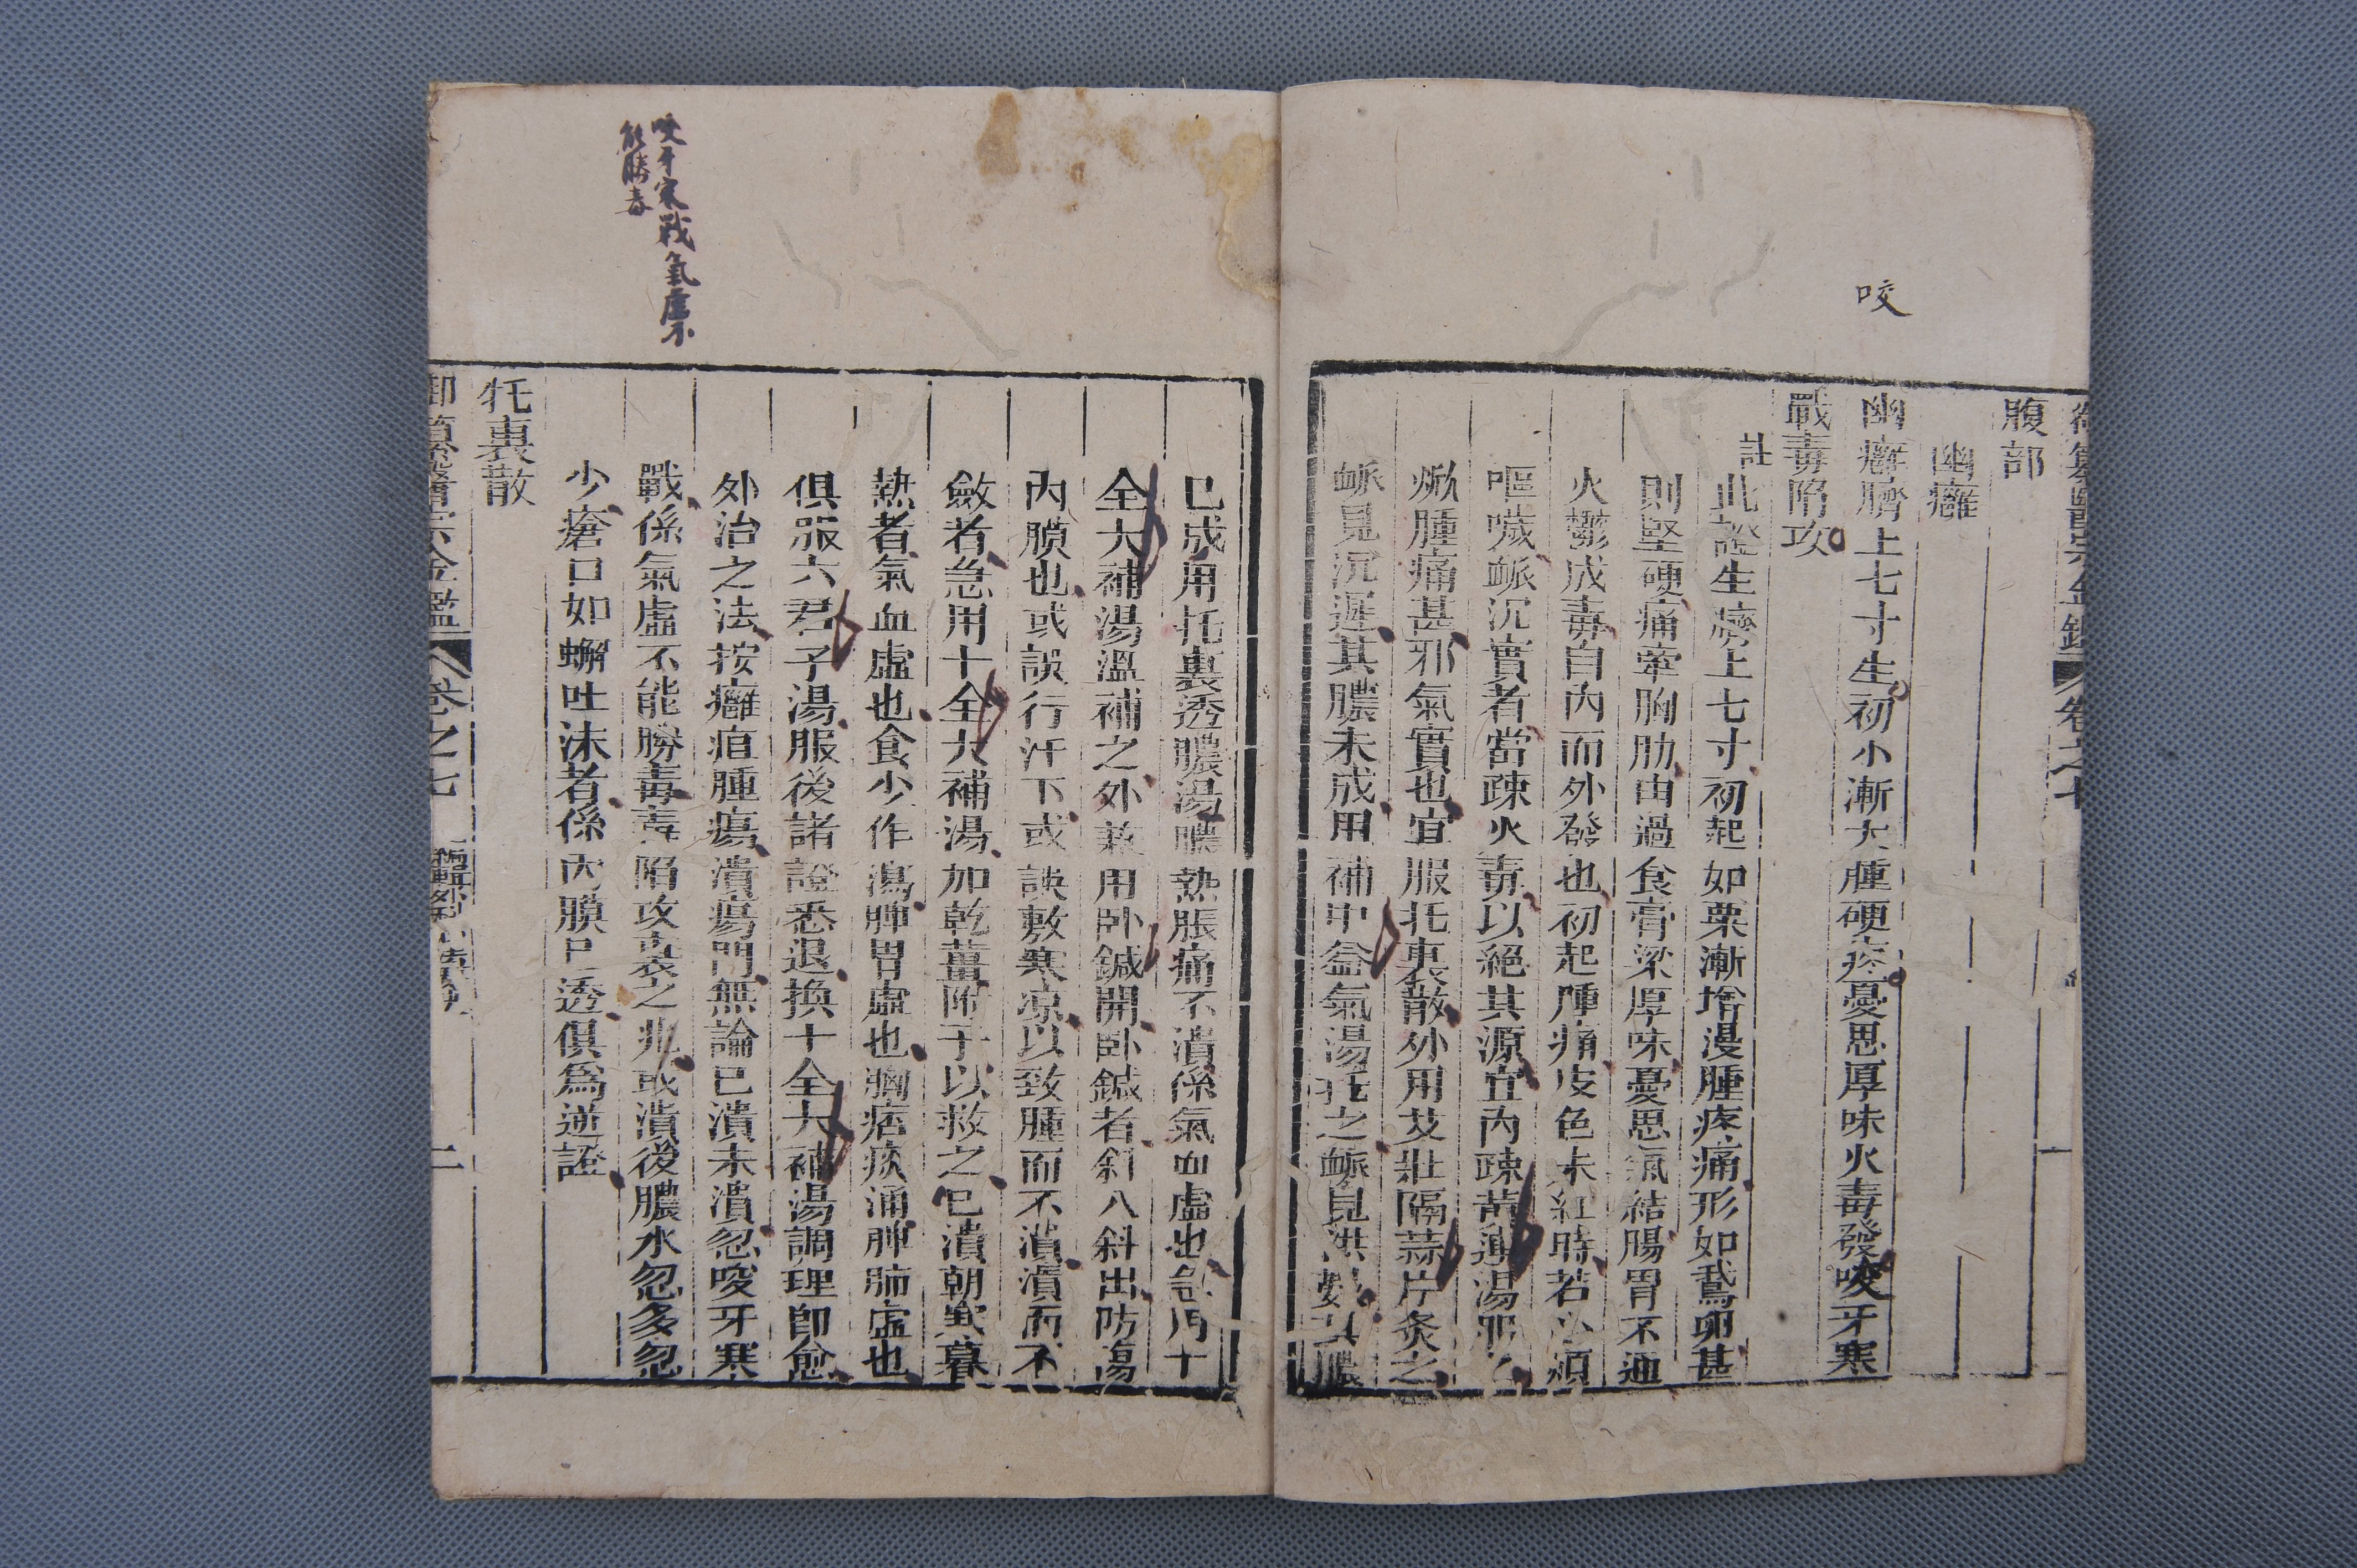 咬
卷之七
腹部
幽癰
幽癰臍上七寸生初小漸大腫硬疼憂思厚味火毒發咬牙寒
戰毒陷攻
註
此證生臍上七寸初起如粟漸增漫腫疼痛形如鵞卵甚
則堅硬痛牽胸肋由過食膏粱厚味憂思氣結腸胃不通
火鬱成毒自內而外發也初起腫痛皮色未紅時若心煩
嘔噦䘑沉實者當疎火毒以絕其源宜內疎黃連湯
焮腫痛甚邪氣實也宜服托裏散外用艾壯隔蒜片灸之
䘑見沉遲其膿未成用補中益氣湯托之䘑見洪數其膿
咬牙寒戰氣虛不
能勝毒
已成用托裏透膿湯膿熟脹痛不潰係氣血虛也急用十
全大補湯溫補之外兼用卧鍼開卧鍼者斜入斜出防傷
內膜也或誤行汗下或誤敷寒凉以致腫而不潰潰而不
斂者急用十全大補湯加乾薑附子以救之已潰朝寒暮
熱者氣血虛也食少作瀉脾胃虛也胸痞痰涌脾肺虛也
俱服六君子湯服後諸證悉退換十全大補湯調理卽愈
外治之法按癰疽腫瘍潰瘍門無論已潰未潰忽咬牙寒
戰係氣虛不能勝毒毒陷攻裏之兆或潰後膿水忽多忽
少瘡口如蠏吐沫者係內膜已透俱爲逆證
托裏散
御纂醫宗金鑑 卷之七 編輯外科心法要訣 二